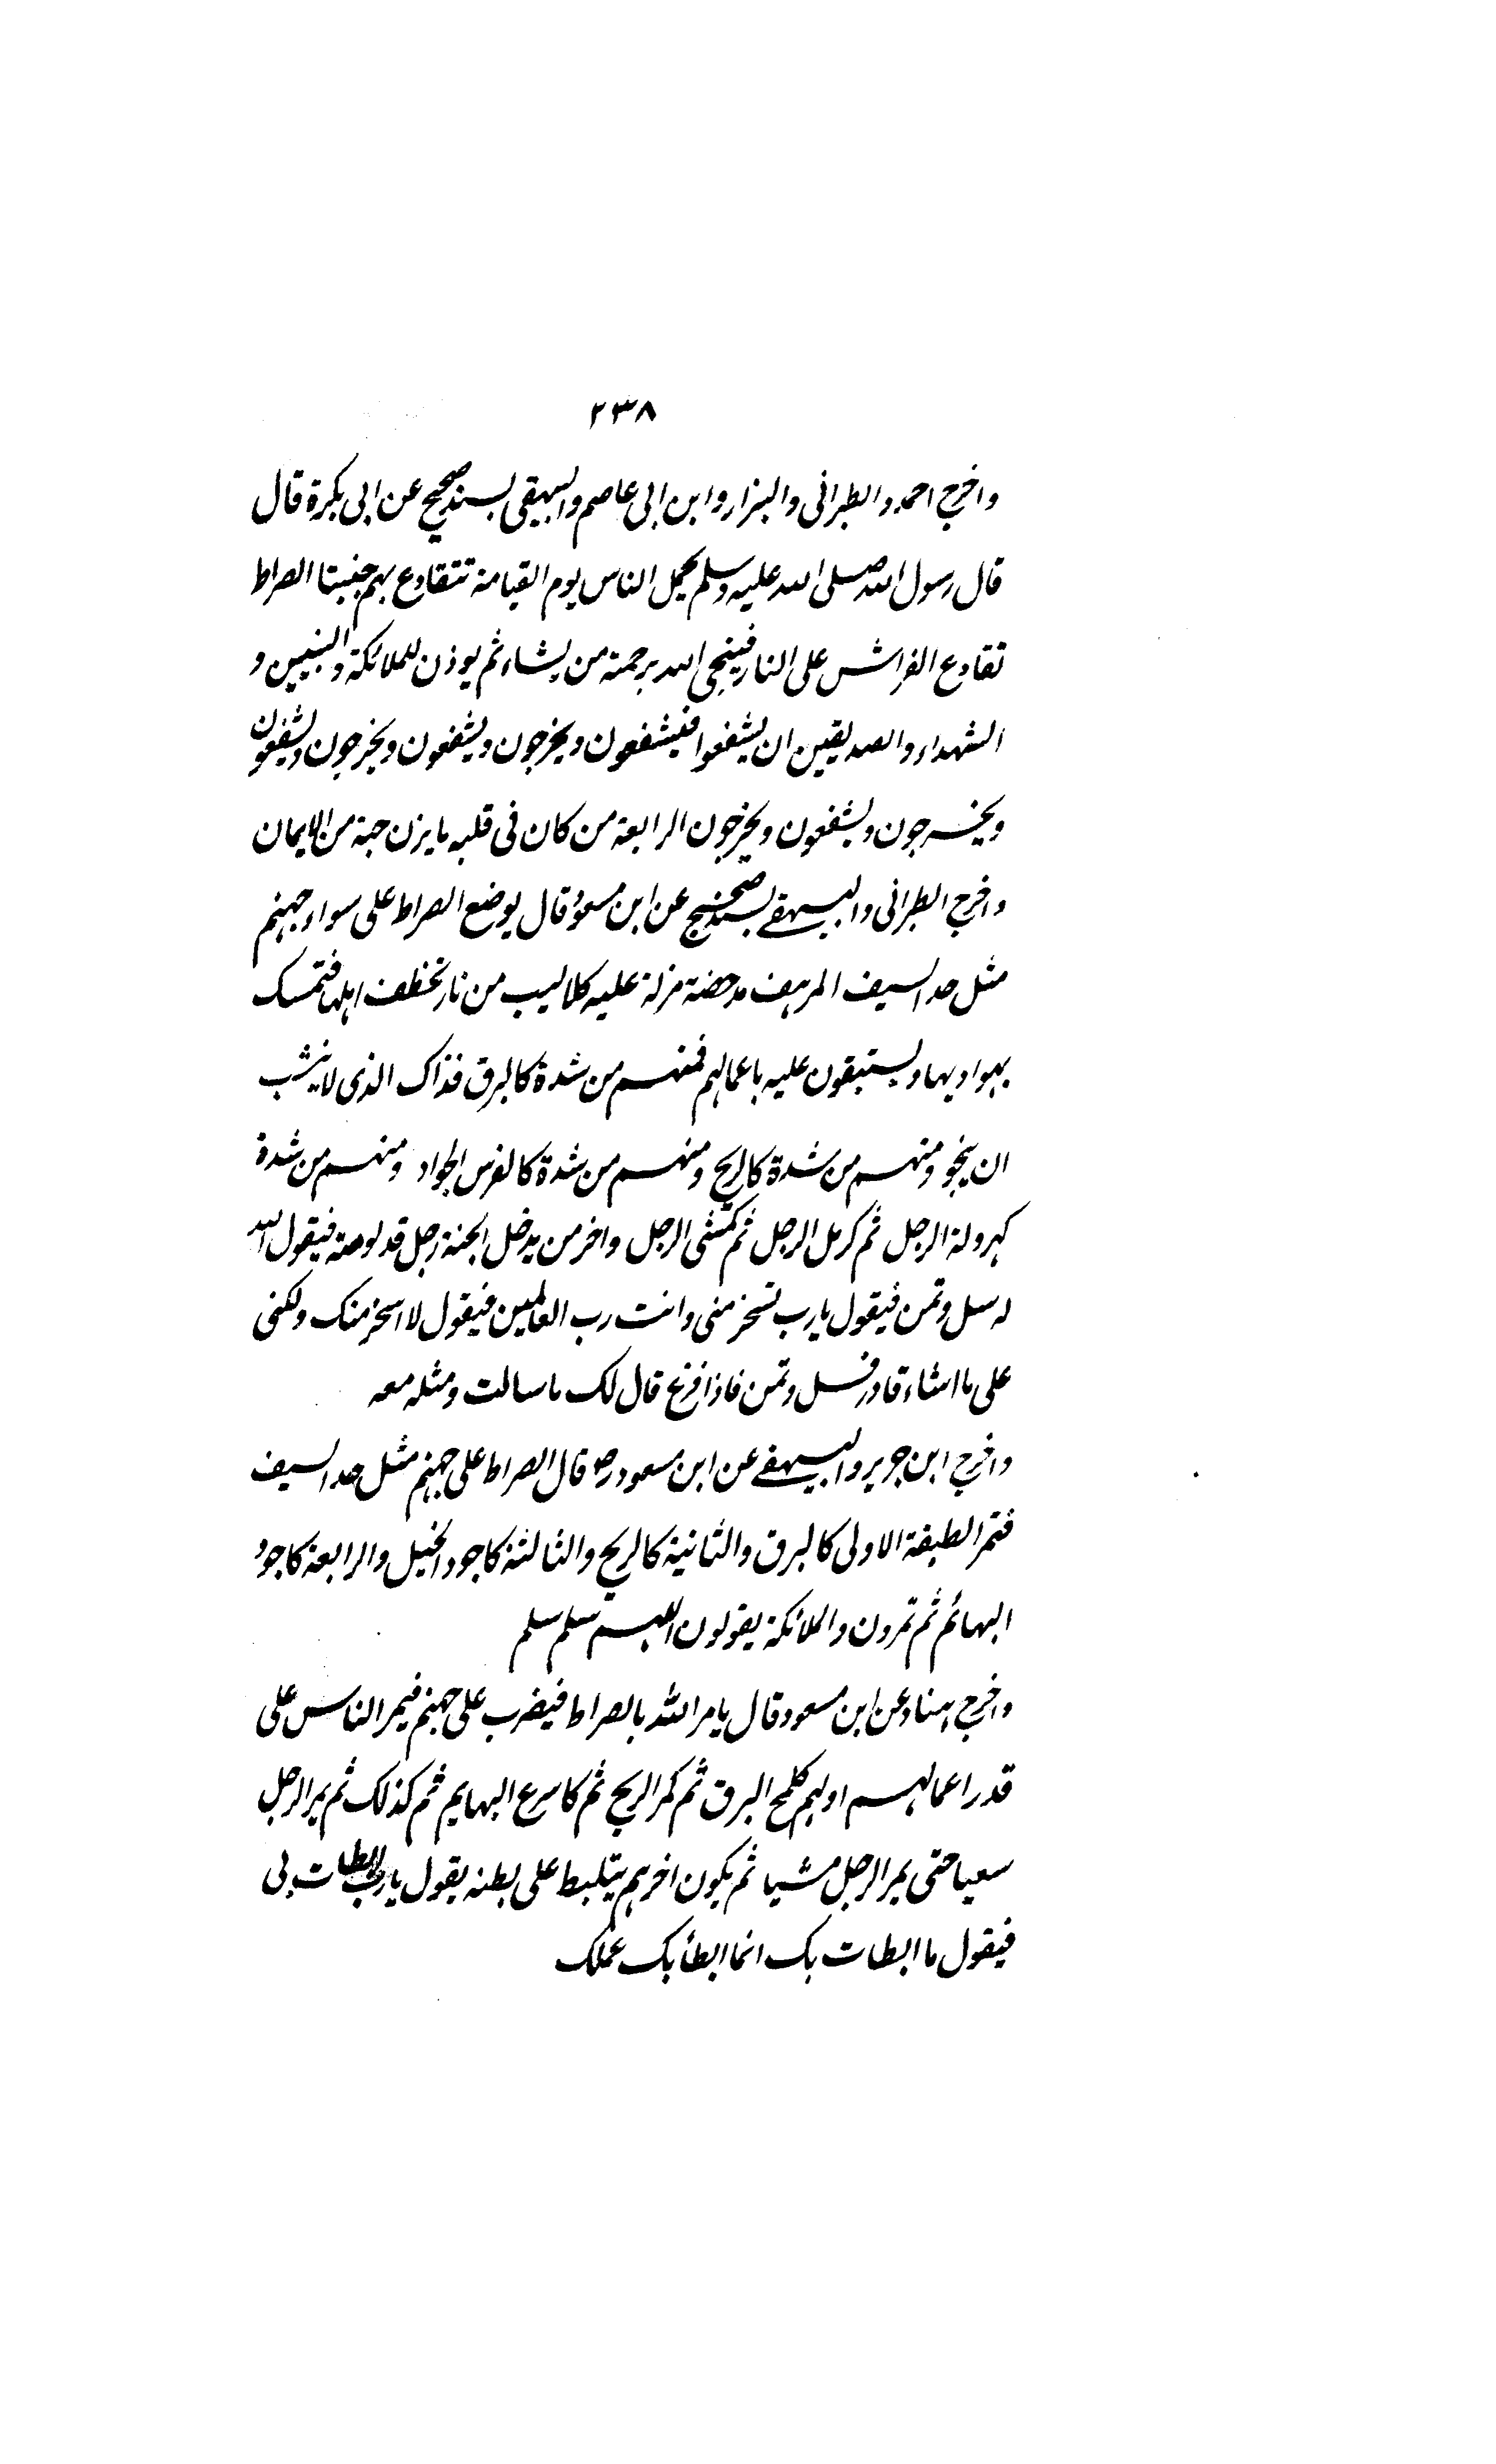 ٢٣٨
واخرج احمد والطبرانی والبزار وابن ابی عاصم والبیهقی بسند صحیح عن ابی بکرة قال
قال رسول الله صلی الله علیه وسلم یحمل الناس یوم القیامة تتقادع بهم جنبتا الصراط
تقادع الفراش علی النار فینجی الله برحمته من یشاء ثم یوذن للملائکة والنبیین و
الشهداء والصدیقین ان یشفعوا فیشفعون ویخرجون ویشفعون ویخرجون ویشفعون
ویخرجون ویشفعون ویخرجون الرابعة من کان فی قلبه ما یزن حبة من الایمان
واخرج الطبرانی والبیهقے بسند صحیح عن ابن مسعود قال یوضع الصراط علی سواء جهنم
مثل حد السیف المرهف مدحضة مزلة علیه کلالیب من نار تخطف اهلها فتمسک
بهوادیها ویستبقون علیه باعمالهم فمنهم من شدة کالبرق فذاک الذی لا ینشب
ان ینجو ومنهم من شدة کالریح ومنهم من شدة کالفرس الجواد ومنهم من شدة
کهرولة الرجل ثم کرمل الرجل ثم کمشی الرجل واخر من یدخل الجنة رجل قد لوحته فیقول الله
له سل وتمن فیقول یارب تسخر منی وانت رب العلمین فیقول لا اسخر منک ولکنی
علی ما اشاء قادر فسل وتمن فاذا فرغ قال لک ما سالت ومثله معه
واخرج ابن جریر والبیهقے عن ابن مسعود رض قال الصراط علی جهنم مثل حد السیف
فتمر الطبقة الاولی کالبرق والثانیة کالریح والثالثة کاجود الخیل والرابعة کاجود
البهائم ثم تمرون والملائکة یقولون اللهم سلم سلم
واخرج هناد عن ابن مسعود قال یامر الله بالصراط فیضرب علی جهنم فیمر الناس علی
قدر اعمالهم اولهم کلمح البرق ثم کمر الریح ثم کاسرع البهایم ثم کذلک ثم یمر الرجل
سعیا حتی یمر الرجل مشیا ثم یکون اخرهم یتلبط علی بطنه یقول یارب ابطات بی
فیقول ما ابطات بک انما ابطأ بک عملک